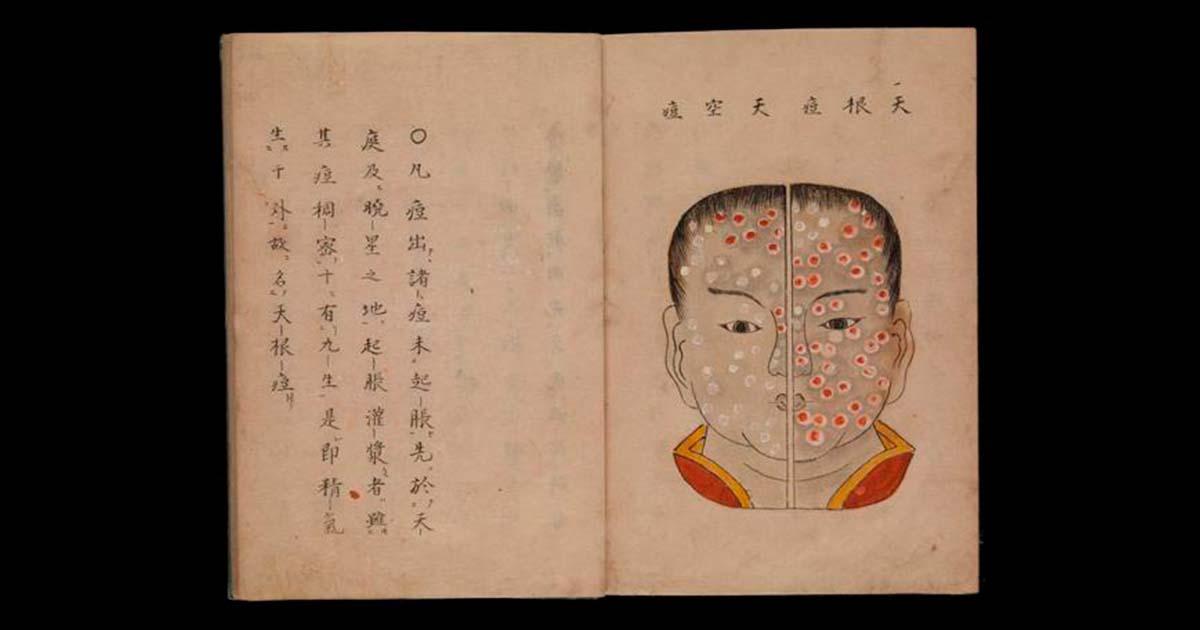 一天根痘天空痘
〇凡痘出諸痘未起脹先於天
庭及晩星之地起脹灌漿者雖
其痘稠密十有九生是即精氣
生于外故名天根痘